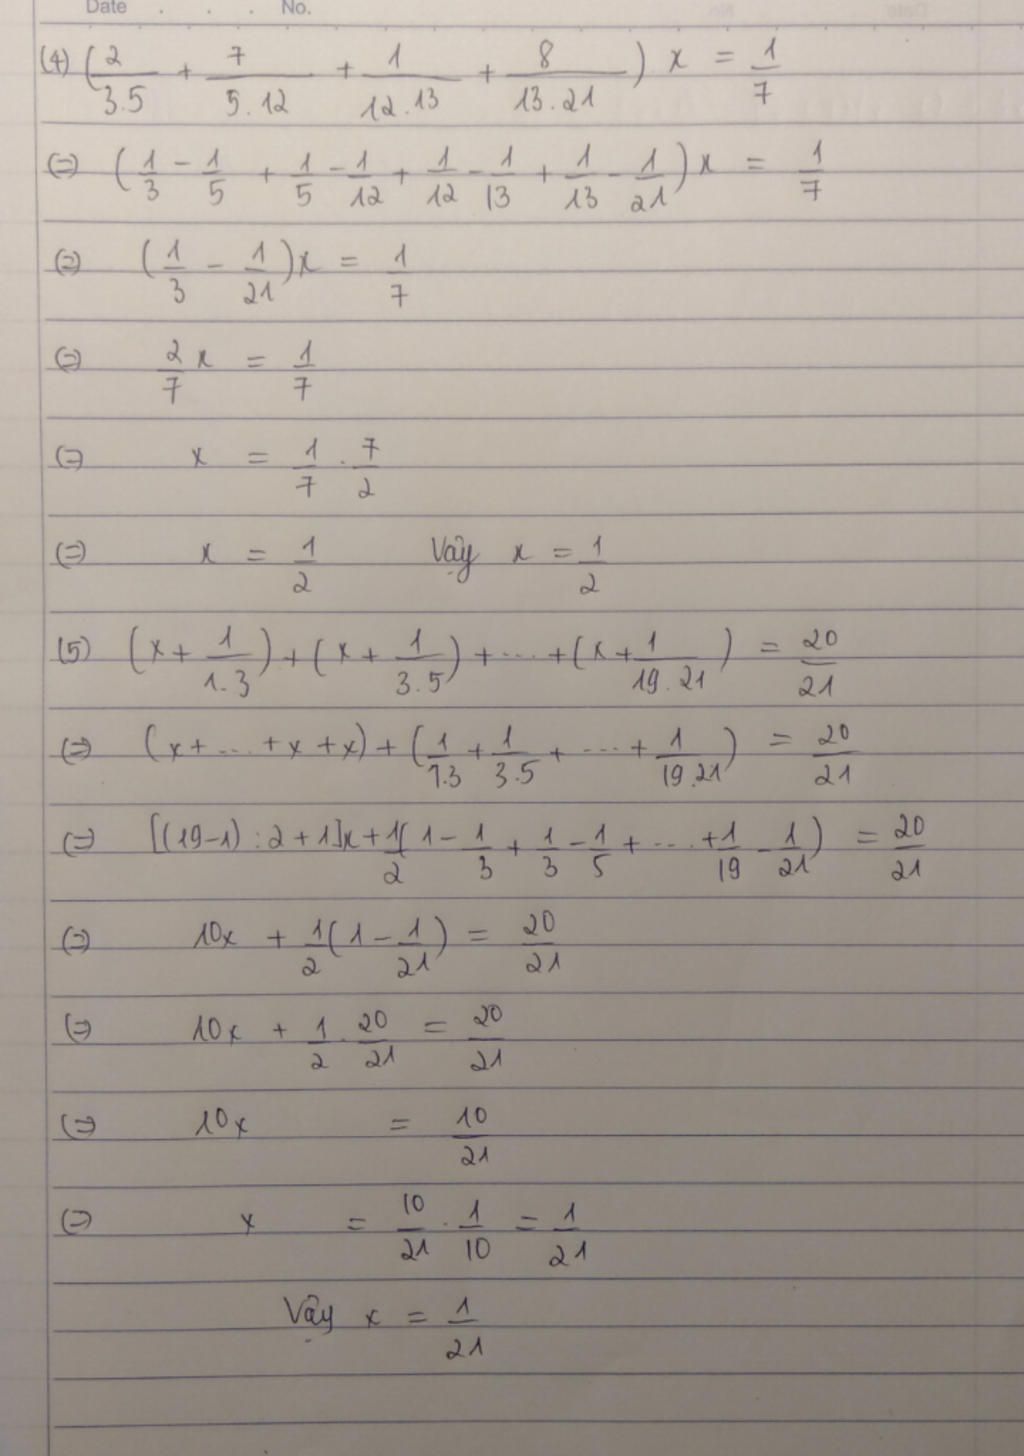 Date . . . No.
(4) (2/3.5 + 7/5.12 + 1/12.13 + 8/13.21) x = 1/7
(=) (1/3 - 1/5 + 1/5 - 1/12 + 1/12 - 1/13 + 1/13 - 1/21) x = 1/7
(=) (1/3 - 1/21) x = 1/7
(=) 2/7 x = 1/7
(=) x = 1/7 . 7/2
(=) x = 1/2 Vậy x = 1/2
(5) (x + 1/1.3) + (x + 1/3.5) + ... + (x + 1/19.21) = 20/21
(=) (x + ... + x + x) + (1/1.3 + 1/3.5 + ... + 1/19.21) = 20/21
(=) [(19-1) : 2 + 1]x + 1/2(1 - 1/3 + 1/3 - 1/5 + ... + 1/19 - 1/21) = 20/21
(=) 10x + 1/2(1 - 1/21) = 20/21
(=) 10x + 1/2 . 20/21 = 20/21
(=) 10x = 10/21
(=) x = 10/21 . 1/10 = 1/21
Vậy x = 1/21